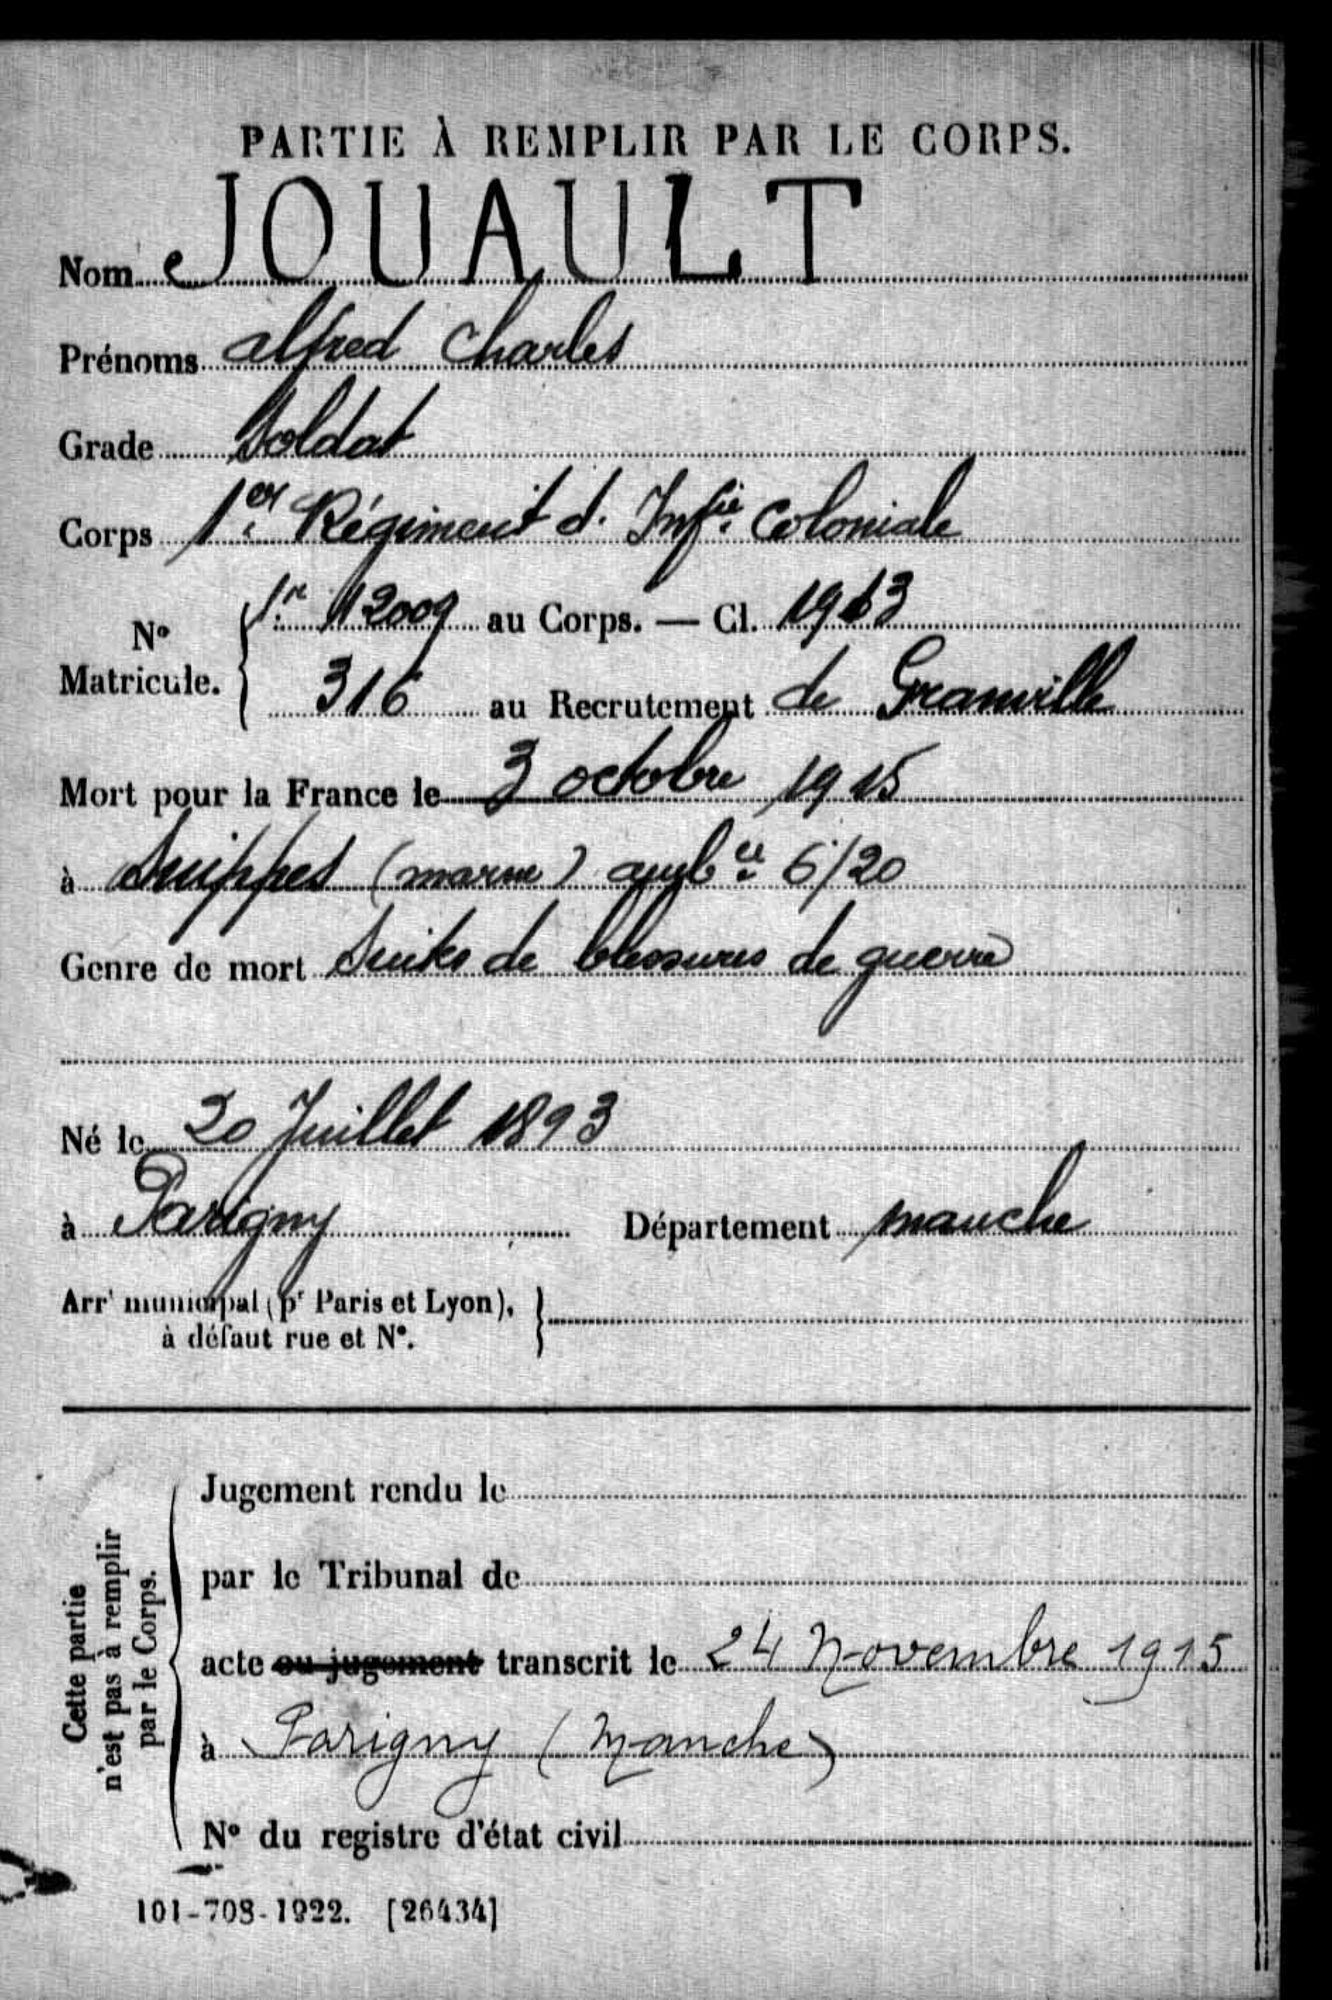 PARTIE À REMPLIR PAR LE CORPS.
Nom JOUAULT
Prénoms alfred Charles
Grade Soldat
Corps 1er Régiment d. Infie Coloniale
N° Matricule. { 1r 12009 au Corps. — Cl. 1913
316 au Recrutement de Granville
Mort pour la France le 3 octobre 1915
à Suippes (marne) ambce 6/20
Genre de mort Suites de blessures de guerre
Né le 20 Juillet 1893
à Parigny Département manche
Arrt municipal (pr Paris et Lyon), }
à défaut rue et N°.
Cette partie
n'est pas à remplir
par le Corps.
Jugement rendu le
par le Tribunal de
acte ou jugement transcrit le 24 Novembre 1915
à Parigny (Manche)
N° du registre d'état civil
101-708-1922. [26434]